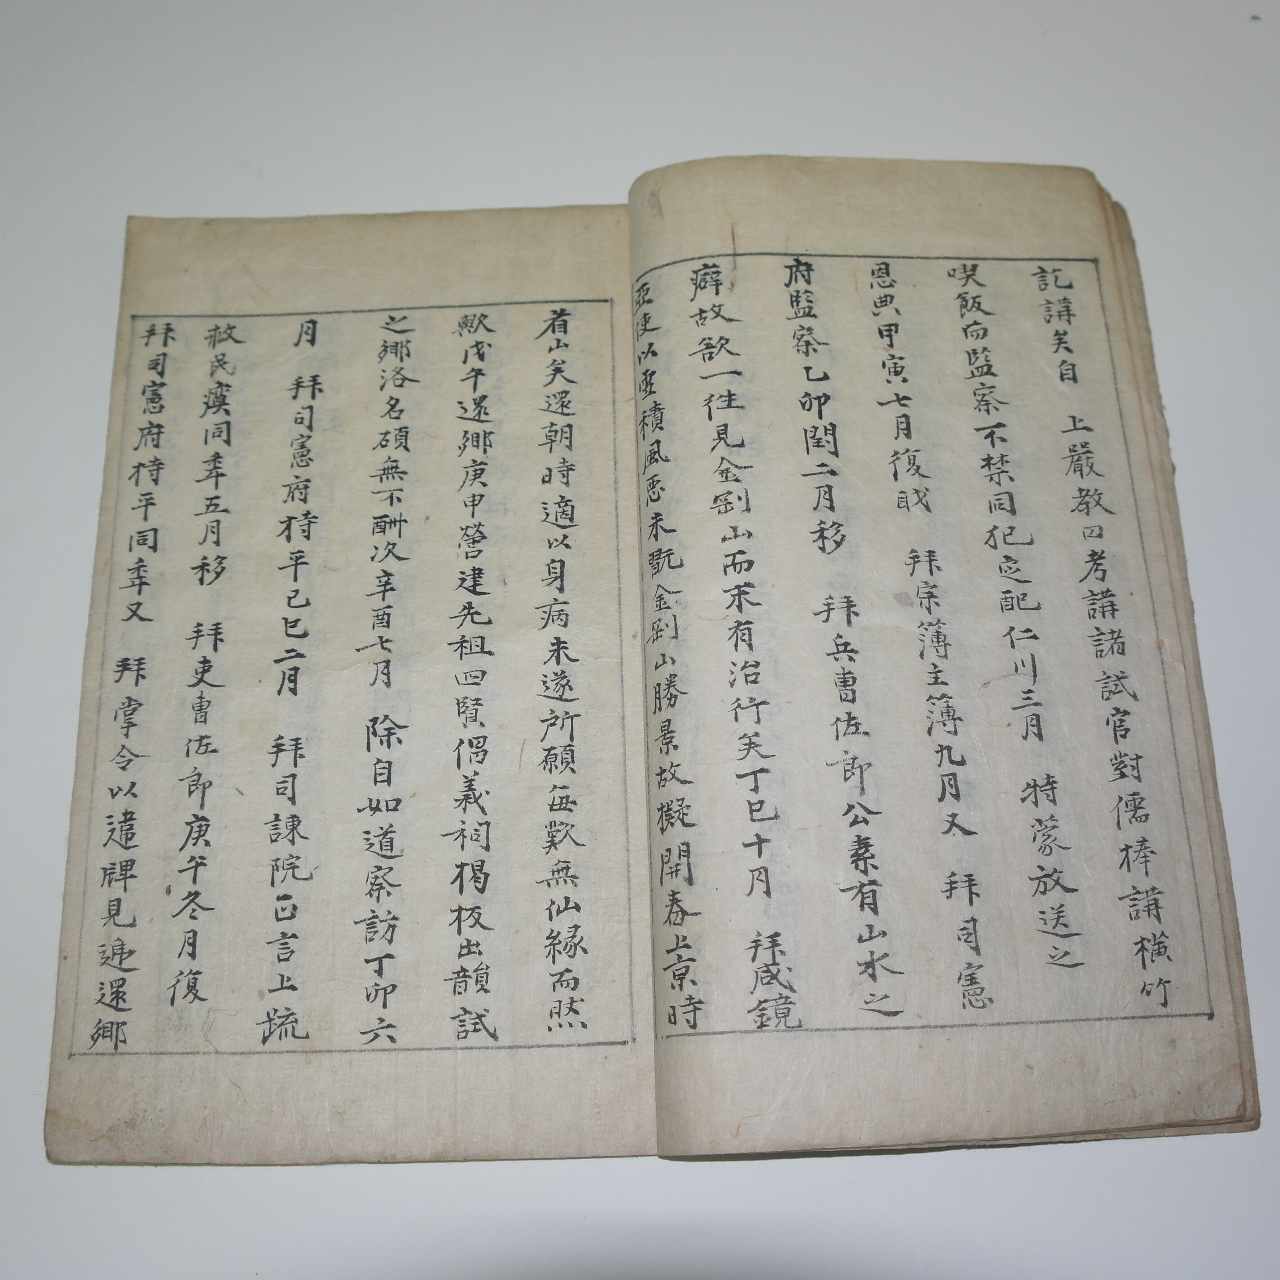 訖講矣自 上嚴教曰考講諸試官對儒捧講橫竹
喫飯而監察不禁同犯定配仁川三月 特蒙放送之
恩典甲寅七月復職 拜宗簿主簿九月又 拜司憲
府監察乙卯閏二月移 拜兵曹佐郎公素有山水之
癖故欲一徃見金剛山而未有治行矣丁巳十月 拜咸鏡
亞使以雪積風惡未翫金剛山勝景故擬開春上京時
看山矣還朝時適以身病未遂所願每歎無仙緣而然
歟戊午還鄉庚申營建先祖四賢倡義祠揭板出韻試
之鄉洛名碩無不酬次辛酉七月 除自如道察訪丁卯六
月 拜司憲府持平己巳二月 拜司諫院正言上疏
救民瘼同年五月移 拜吏曹佐郎庚午冬月復
拜司憲府持平同年又 拜掌令以違牌見遞還鄉